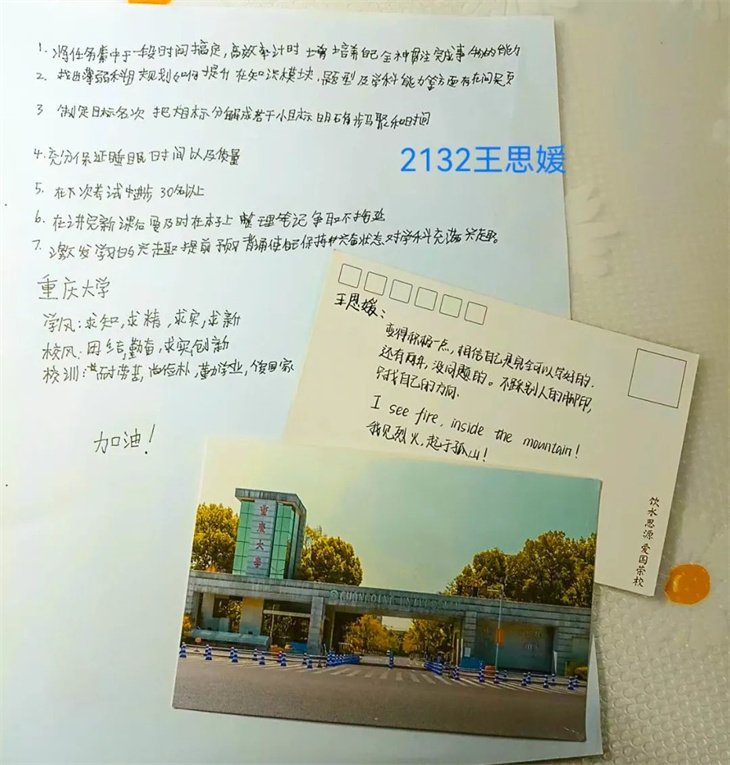 1. 将任务集中于一段时间搞定,高效率计时 培养自己全神贯注完成事物的能力
2. 找出薄弱科目 规划如何提升 在知识模块,题型及学科能力等方面存在问题
3 制定目标名次 把大目标分解成若干小目标 明确步骤和时间
4.充分保证睡眠时间以及质量
2132王思媛
5. 在下次考试中进步30名以上
6. 在讲完新课后要及时在本子上 整理笔记 争取不拖延
7. 激发学习的兴趣 提前预习 背诵 使自己保持兴奋状态 对学科充满兴趣。
重庆大学
学风:求知,求精,求实,求新
校风:团结,勤奋,求实,创新
校训: 耐劳苦,尚俭朴,勤学业,爱国家
加油!
王思媛:
变得积极一点,相信自己是完全可以学好的.
还有两年,没问题的。不踩别人的脚印,
只找自己的方向.
I see fire, inside the mountain!
我见烈火,起于孤山!
饮水思源 爱国荣校
重庆大学
CHONGQING UNIVERSITY